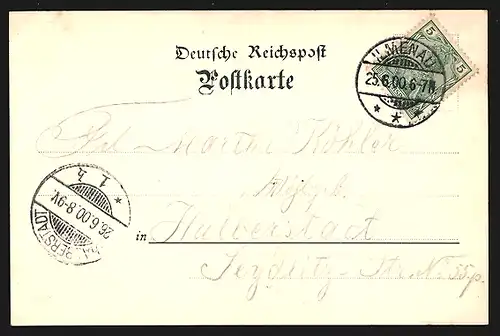 Deutsche Reichspost
Postkarte
5
5
ILMENAU
25.6.00.6-7N.
* * *
Frl. Martha Köhler
in Halberstadt
Seydlitz-Str. No 55p.
HALBERSTADT
26.6.00.8-9V.
* 1 h